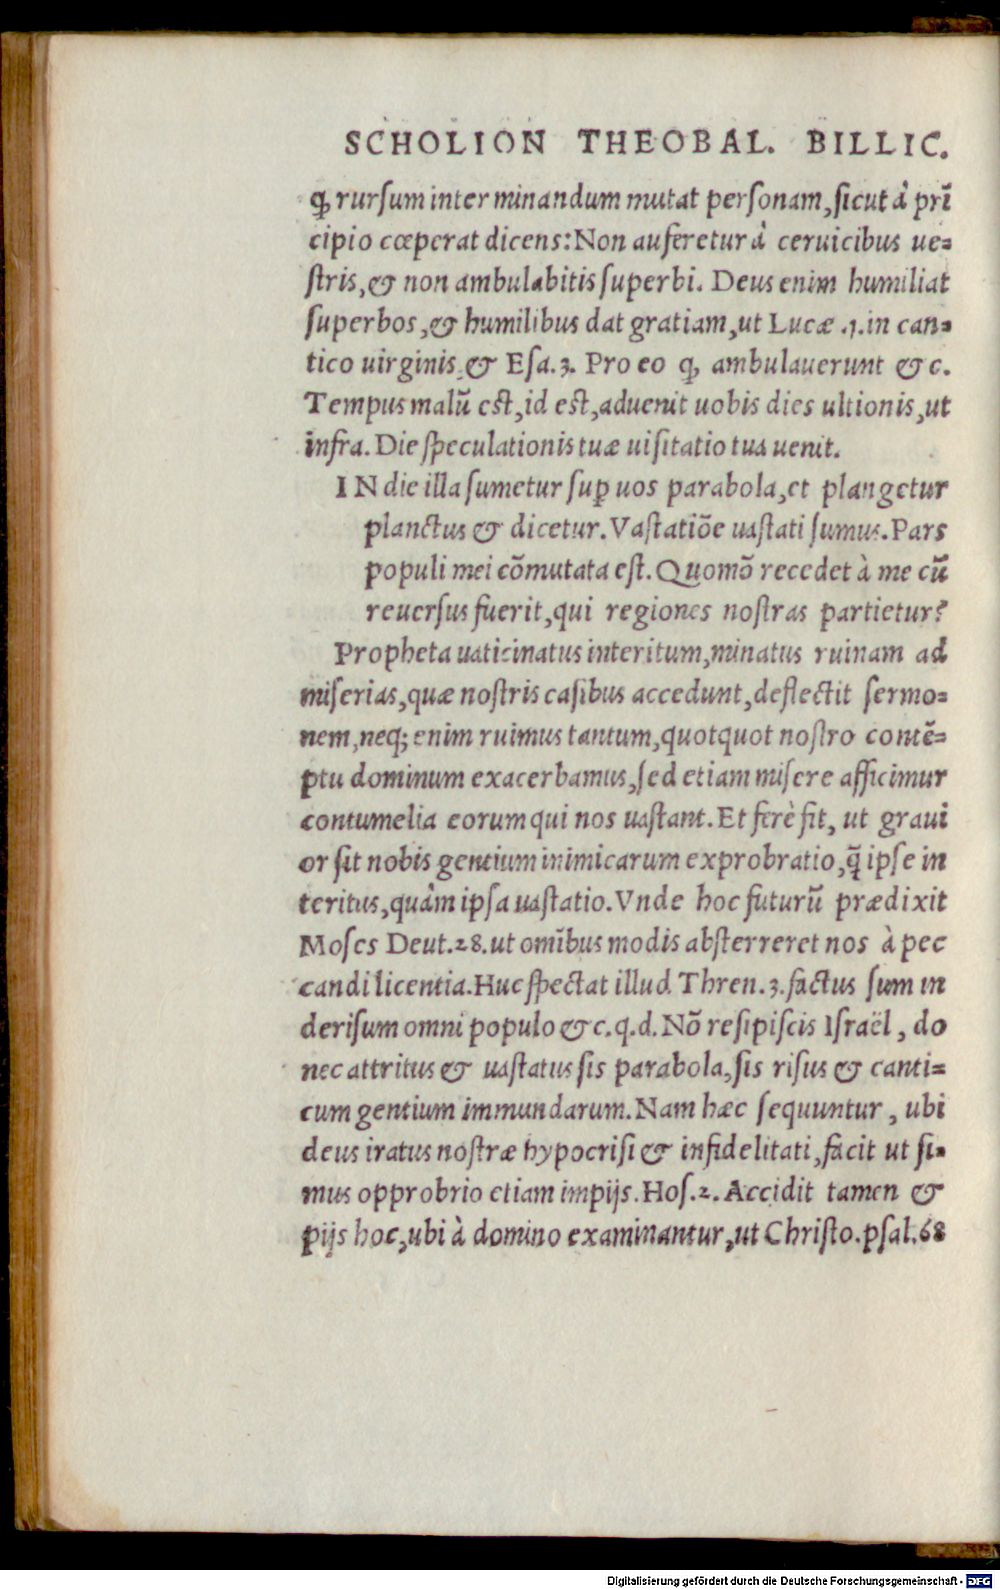 SCHOLION THEOBAL. BILLIC.
ꝙ rursum inter minandum mutat personam, sicut à prī
cipio cœperat dicens: Non auferetur à ceruicibus ue=
stris, & non ambulabitis superbi. Deus enim humiliat
superbos, & humilibus dat gratiam, ut Lucæ .1. in can=
tico uirginis, & Esa. 3. Pro eo ꝙ ambulauerunt &c.
Tempus malū est, id est, aduenit uobis dies ultionis, ut
infra. Die speculationis tuæ uisitatio tua uenit.
IN die illa sumetur suꝑ uos parabola, et plangetur
planctus & dicetur. Vastatiōe uastati sumus. Pars
populi mei cōmutata est. Quomō recedet à me cū
reuersus fuerit, qui regiones nostras partietur?
Propheta uaticinatus interitum, minatus ruinam ad
miserias, quæ nostris casibus accedunt, deflectit sermo=
nem, neq; enim ruimus tantum, quotquot nostro contē=
ptu dominum exacerbamus, sed etiam misere afficimur
contumelia eorum qui nos uastant. Et ferè fit, ut graui
or sit nobis gentium inimicarum exprobratio, q̄ ipse in
teritus, quàm ipsa uastatio. Vnde hoc futurū prædixit
Moses Deut. 28. ut omībus modis absterreret nos à pec
candi licentia. Huc spectat illud Thren. 3. factus sum in
derisum omni populo &c. q.d. Nō resipiscis Israël, do
nec attritus & uastatus sis parabola, sis risus & canti=
cum gentium immundarum. Nam hæc sequuntur, ubi
deus iratus nostræ hypocrisi & infidelitati, facit ut si=
mus opprobrio etiam impijs. Hos. 2. Accidit tamen &
pijs hoc, ubi à domino examinantur, ut Christo. psal. 68
Digitalisierung gefördert durch die Deutsche Forschungsgemeinschaft - DFG